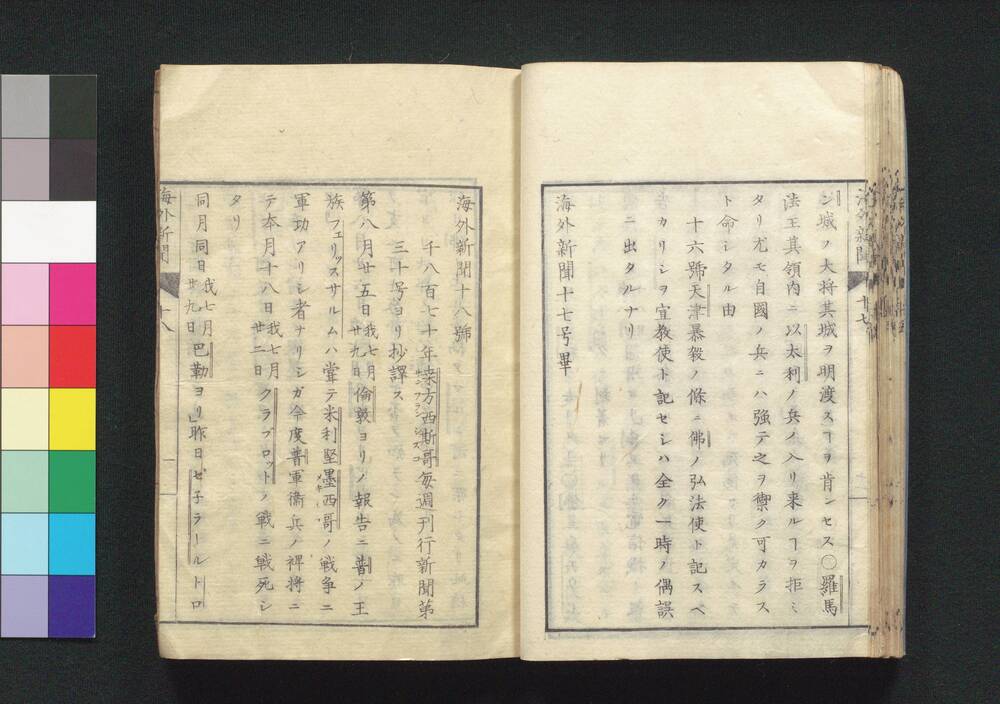 ン城ノ大将其城ヲ明渡スヿヲ肯ンセス〇羅馬
法王其領内ニ以太利ノ兵ノ入リ来ルヿヲ拒ミ
タリ尤モ自國ノ兵ニハ強テ之ヲ禦ク可カラス
ト命シタル由
十六號天津暴殺ノ條ニ佛ノ弘法使ト記スベ
カリシヲ宣教使ト記セシハ全ク一時ノ偶誤
ニ出タルナリ
海外新聞十七号畢
海外新聞十八號
千八百七十年桒方西斯哥毎週刊行新聞第
三十号ヨリ抄譯ス
第八月廿五日我七月廿九日倫敦ヨリノ報告ニ普ノ王
族フェリッスサルムハ甞テ米利堅墨西哥ノ戦争ニ
軍功アリシ者ナリシガ今度普軍衛兵ノ裨将ニ
テ本月十八日我七月廿二日クラブロットノ戦ニ戦死シ
タリ
同月同日我七月廿九日巴勒ヨリ」昨日ゼ子ラールトロ
海外新聞
十八
海外新聞
十七